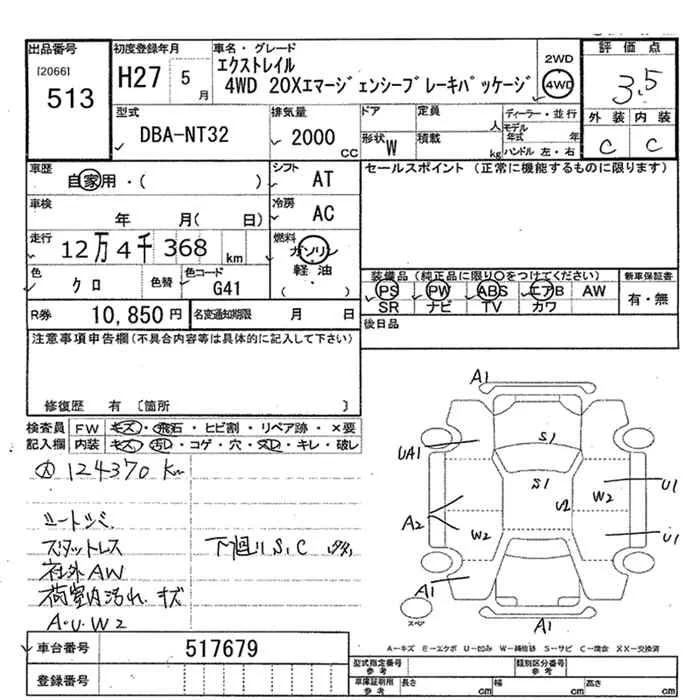 出品番号 初度登録年月 車名・グレード 評価点
[2066] 513 H27 5月 エクストレイル
4WD 20Xエマージェンシーブレーキパッケージ 2WD 4WD 3.5
型式 排気量 ドア 定員 人 ディーラー・並行 外装 内装
DBA-NT32 2000 CC 形状 W 積載 kg モデル年式 年 ハンドル 左・右 C C
車歴 自家用・( ) シフト AT セールスポイント (正常に機能するものに限ります)
車検 年 月( 日) 冷房 AC
走行 12万4千368 km 燃料 ガソリン
軽油
( ・ )
色 クロ 色替 色コード G41 装備品 (純正品に限り○をつけてください) 新車保証書
PS PW ABS エアB AW 有・無
SR ナビ TV カワ
R券 10,850円 名変通知期限 月 日 後日品
注意事項申告欄(不具合内容等は具体的に記入して下さい)
修復歴 有 [箇所 ]
検査員 FW キズ・飛石・ヒビ割・リペア跡・×要
記入欄 内装 キズ・汚レ・コゲ・穴・スレ・キレ・破レ
124370 Km
シートシミ
スタットレス 下廻りS,C
社外AW
荷室内汚れ、キズ
A・U・W2
A1
UA1 S1
S1 U2 W2 U1
A2 W2 U1
A1
スペア A1
A-キズ E-エクボ U-凹み W-補修跡 S-サビ C-腐食 XX-交換済
車台番号 517679 型式指定番号 参考 類別区分番号 参考
登録番号 車庫証明用 参考 長さ cm 幅 cm 高さ cm